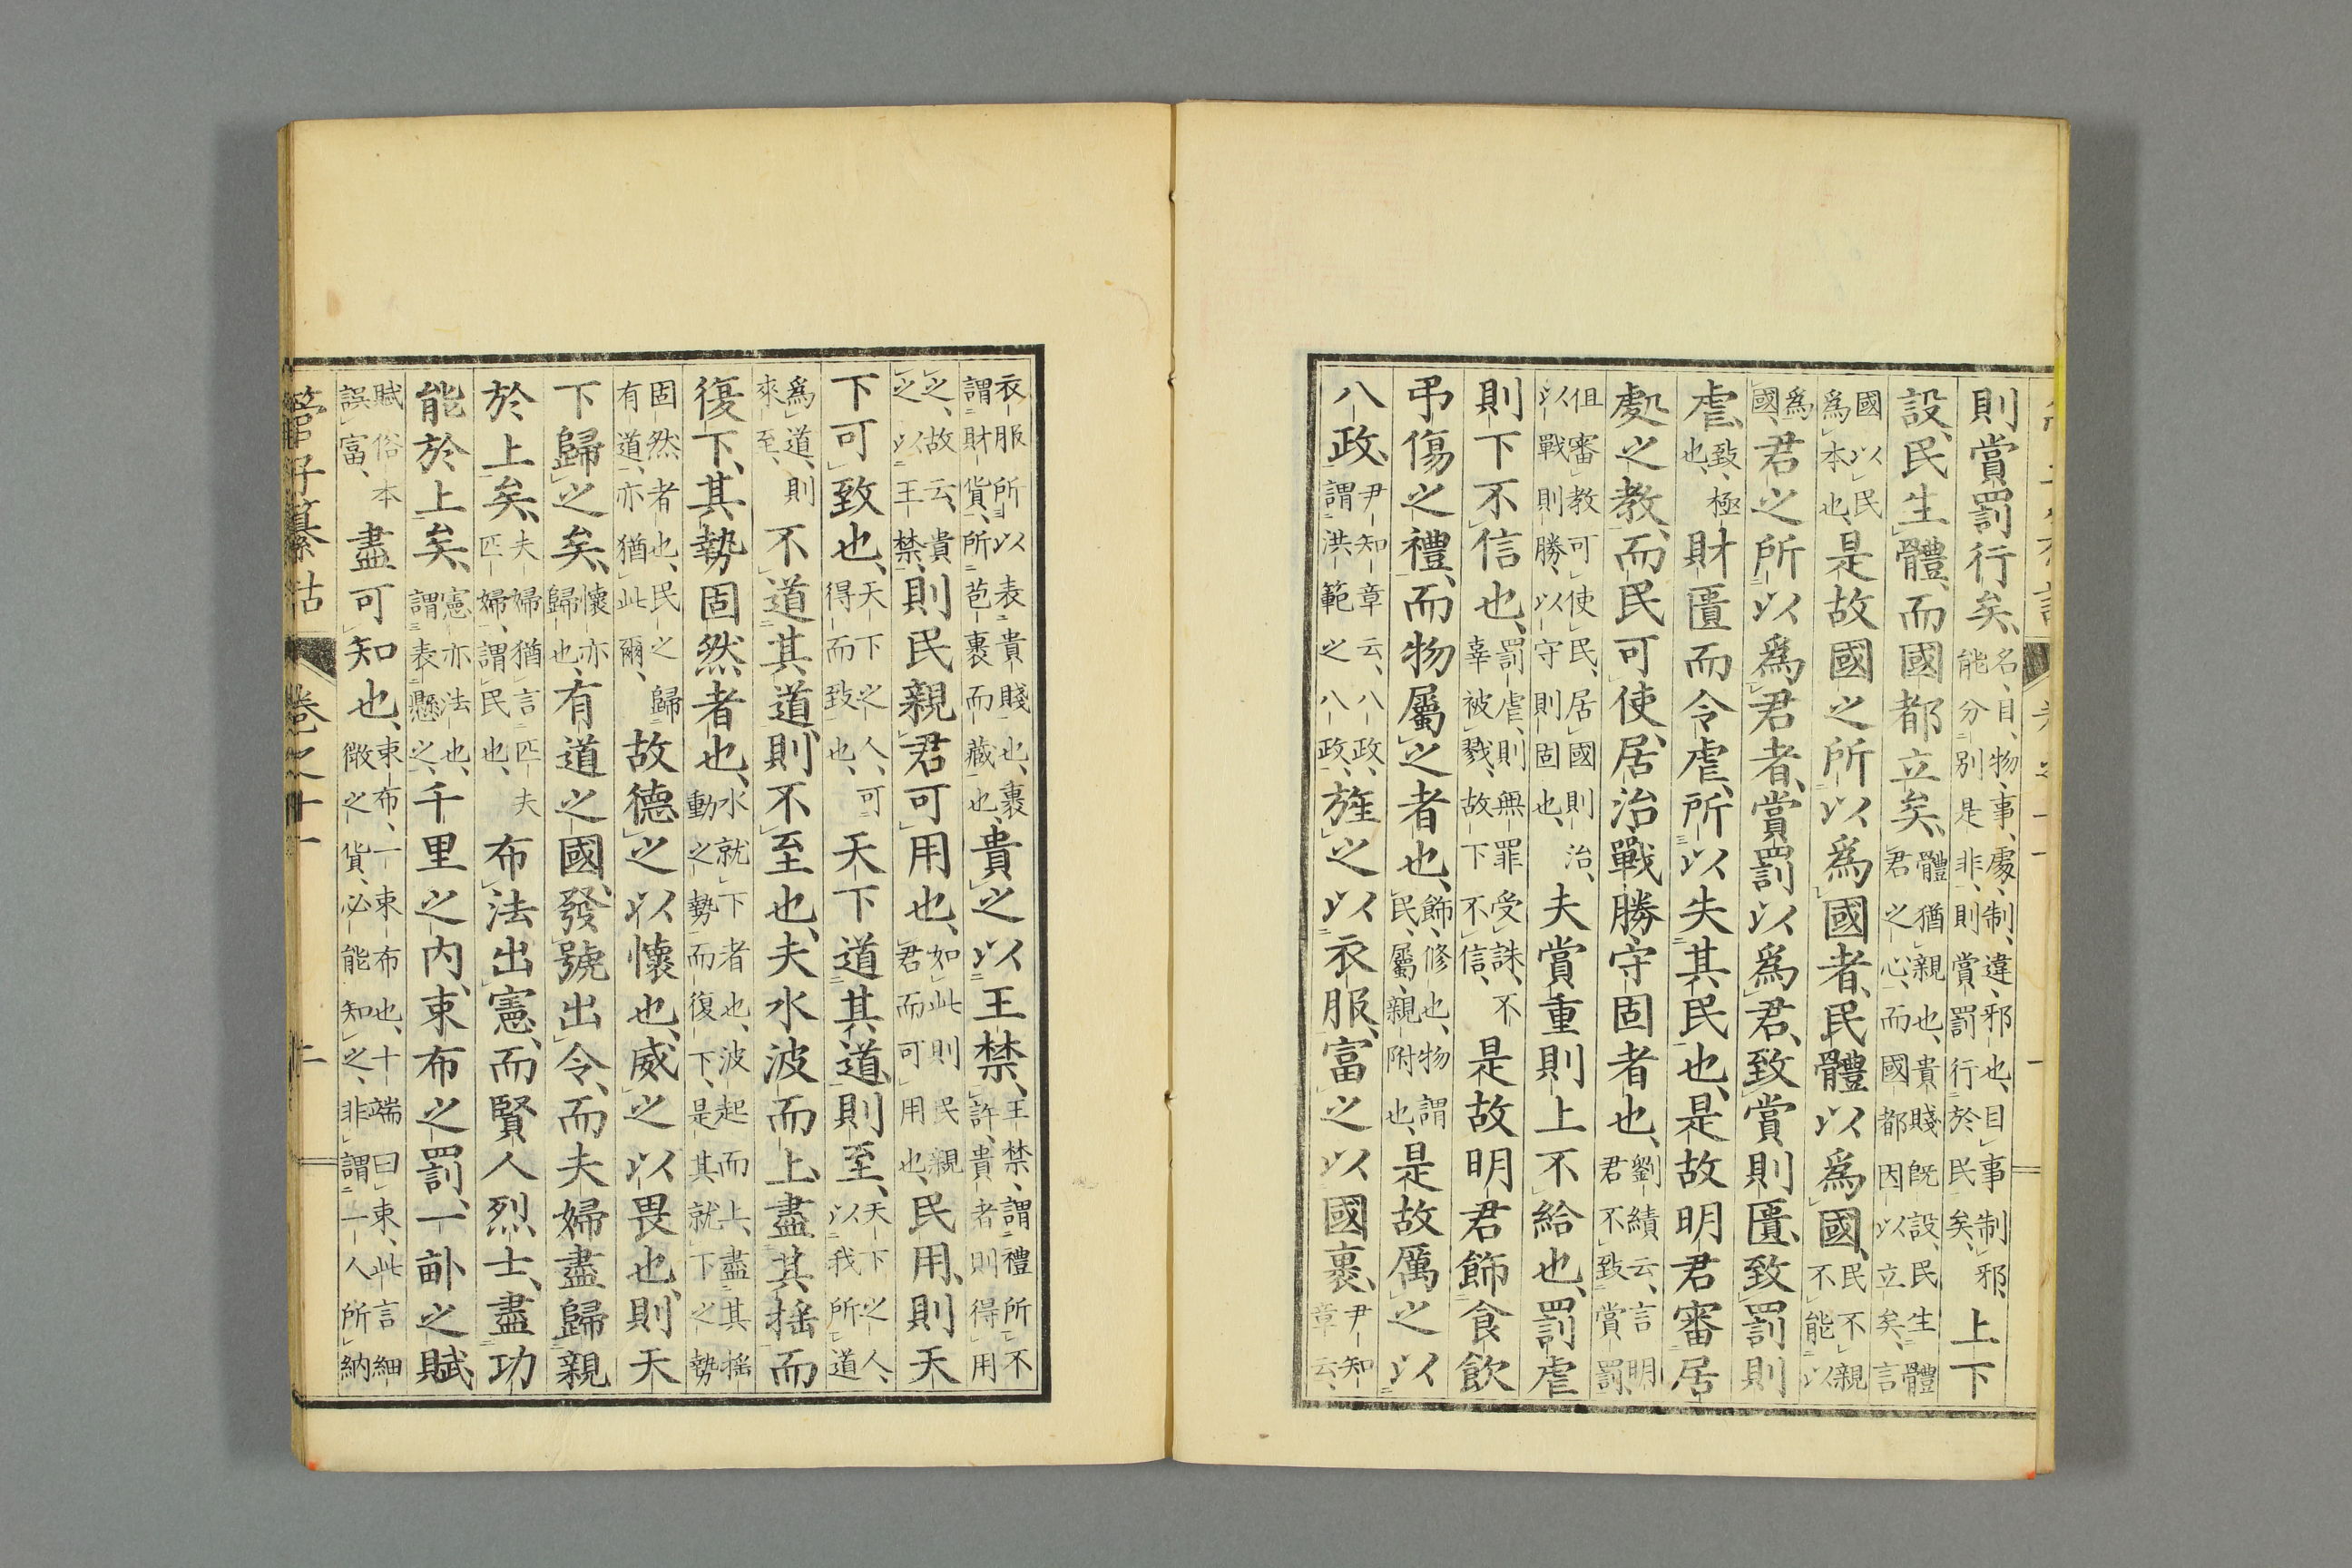 則賞罰行矣、名、目、物、事、處、制、違、邪也、目事制邪、能分別是非、則賞罰行於民矣、上下
設、民生體、而國都立矣、體猶親也、貴賤既設、民生體君之心、而國都因以立矣、言
國以民爲本也、是故國之所以爲國者、民體以爲國、民不親不能以
爲國、君之所以爲君者、賞罰以爲君、致賞則匱、致罰則
虐、致、極也、財匱而令虐、所以失其民也、是故明君審居
處之教、而民可使、居治戰勝守固者也、劉績云、言明君不致賞罰、
但審教可使民、居國則治、以戰則勝、以守則固也、夫賞重則上不給也、罰虐
則下不信也、罰虐、則無罪受誅、不辜被戮、故下不信、是故明君飾食飲
弔傷之禮、而物屬之者也、飾、修也、物謂民、屬、親附也、是故厲之以
八政、尹知章云、八政、謂洪範之八政、旌之以衣服、富之以國裹、尹知章云、
衣服所以表貴賤也、裹謂財貨、所苞裹而藏也、貴之以王禁、王禁、謂禮所不許、貴者則得用
之、故云、貴之以王禁、則民親君可用也、如此則民親君而可用也、民用、則天
下可致也、天下之人、可得而致也、天下道其道、則至、天下之人、以我所道
爲道、則來至、不道其道、則不至也、夫水波而上、盡其搖而
復下、其勢固然者也、水就下者也、波起而上、盡其搖動之勢而復下、是其就下之勢
固然者也、民之歸有道、亦猶此爾、故德之以懷也、威之以畏也、則天
下歸之矣、懷亦歸也、有道之國、發號出令、而夫婦盡歸親
於上矣、夫婦猶言匹夫匹婦、謂民也、布法出憲、而賢人烈士、盡功
能於上矣、憲亦法也、謂表懸之、千里之内、束布之罰、一畝之賦、
賦俗本誤富、盡可知也、束布、一束布也、十端曰束、此言細微之貨、必能知之、非謂一人所納
管子纂詁 卷之十一 二